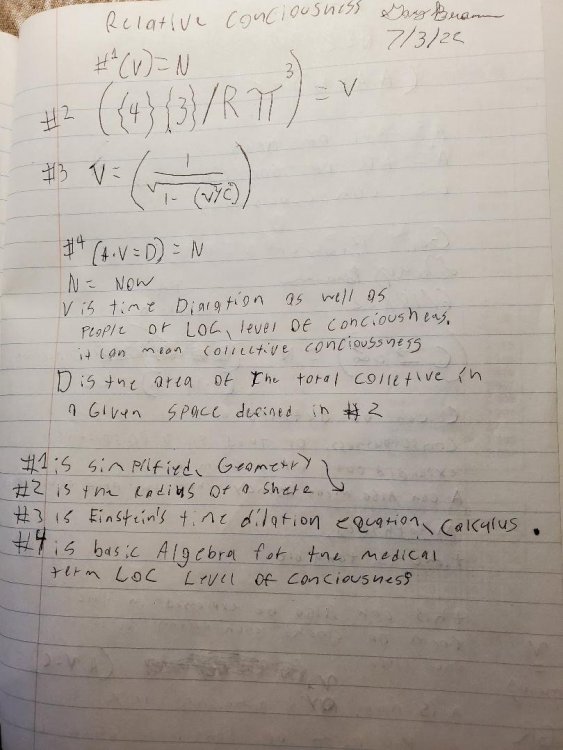 Relative Conciousness
7/3/22
#1 (V) = N
#2 ({4}{3}/R π³) = V
#3 V = (1/√1-(v²/c²))
#4 (A·V=D) = N
N = NOW
V is time Dialation as well as
people or LOC, level of conciousness.
it can mean collective conciousness
D is the area of the total colletive in
a Given space defined in #2
#1 is simplified, Geometry
#2 is the Radius of a shere
#3 is Einstein's time dilation equation, Calculus.
#4 is basic Algebra for the medical
term LOC Level of conciousness